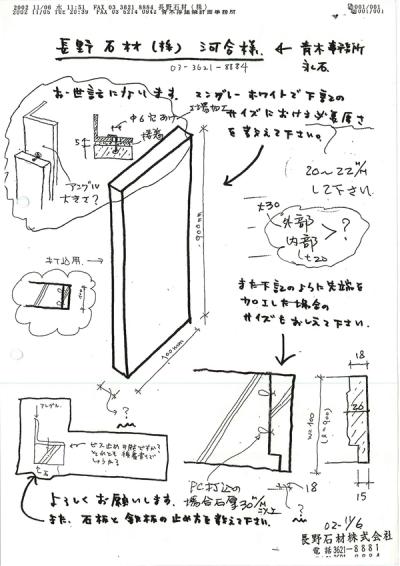 2002 11/06 水 11:51 FAX 03 3621 8884 長野石材(株)
001/001
2002 11/05 TUE 20:39 FAX 03 5214 0942 青木淳建築計画事務所
001/001
長野石材(株) 河合様. ← 青木事務所
03-3621-8884
お世話になります. マングレーホワイトで下記の
サイズにおける必要厚さ
を教えて下さい。
工場加工
φ6穴あけ
接着
5
アングル
大きさ?
20~22m/m
して下さい.
t30
外部
内部 > ?
t20
打込用.
900mm
100mm
?
また下記のように先端を
加工した場合の
サイズもおしえて下さい.
アングル
ビス止め可能ですか?
それとも接着剤で
しょうか?
?
18
20
15
w=100
(l=900)
18
?
PC打込の
場合石厚30m/m
以上
よろしくお願いします.
また、石板と鉄板の止め方を教えて下さい.
02-11/6
長野石材株式会社
電話 3621-8881